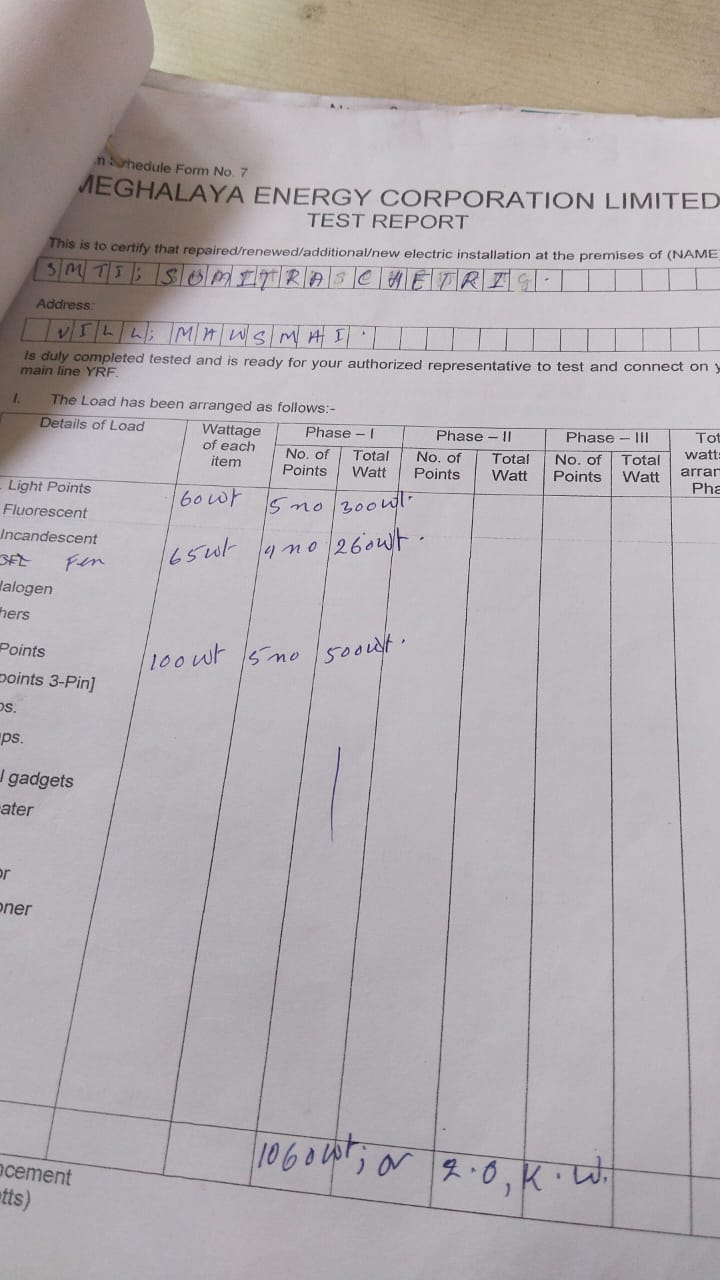 Schedule Form No. 7
MEGHALAYA ENERGY CORPORATION LIMITED
TEST REPORT
This is to certify that repaired/renewed/additional/new electric installation at the premises of (NAME
SMTI; SUMITRA CHETRI.
Address:
VILL; MAWSMAI.
Is duly completed tested and is ready for your authorized representative to test and connect on y
main line YRF.
I. The Load has been arranged as follows:-
Details of Load Wattage of each item Phase – I Phase – II Phase – III Tot
No. of Points Total Watt No. of Points Total Watt No. of Points Total Watt watts arran Pha
Light Points 60 wt 5 no 300 wt.
Fluorescent
Incandescent
CFL Fen 65 wt 4 no 260 wt.
alogen
hers
Points 100 wt 5 no 500 wt.
points 3-Pin]
ps.
ps.
l gadgets
ater
or
oner
1060 wt; or 2.0, K.W.
ncement
tts)